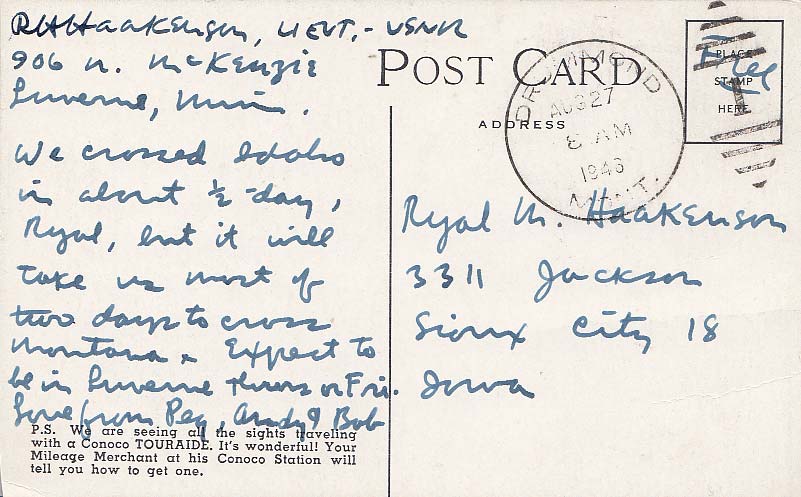 RHHaakenson, LIEUT.- USNR
906 N. McKenzie
Luverne, Minn.
We crossed Idaho
in about ½-day,
Ryal, but it will
take us most of
two days to cross
Montana. Expect to
be in Luverne Thurs or Fri.
Love from Peg, Andy & Bob
P.S. We are seeing all the sights traveling
with a Conoco TOURAIDE. It's wonderful! Your
Mileage Merchant at his Conoco Station will
tell you how to get one.
POST CARD
ADDRESS
DRUMMOND
AUG 27
8 AM
1946
MONT.
PLACE
STAMP
HERE
Free
Ryal M. Haakenson
3311 Jackson
Sioux City 18
Iowa